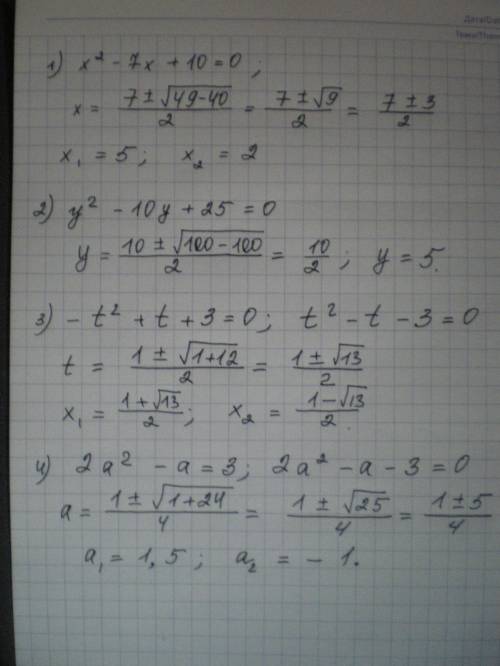 Дата/Da
Тема/The
1) x² - 7x + 10 = 0 ;
x = (7 ± √(49-40))/2 = (7 ± √9)/2 = (7 ± 3)/2
x₁ = 5 ; x₂ = 2
2) y² - 10y + 25 = 0
y = (10 ± √(100 - 100))/2 = 10/2 ; y = 5.
3) - t² + t + 3 = 0 ; t² - t - 3 = 0
t = (1 ± √(1+12))/2 = (1 ± √13)/2
x₁ = (1 + √13)/2 ; x₂ = (1 - √13)/2.
4) 2a² - a = 3 ; 2a² - a - 3 = 0
a = (1 ± √(1+24))/4 = (1 ± √25)/4 = (1 ± 5)/4
a₁ = 1,5 ; a₂ = - 1.